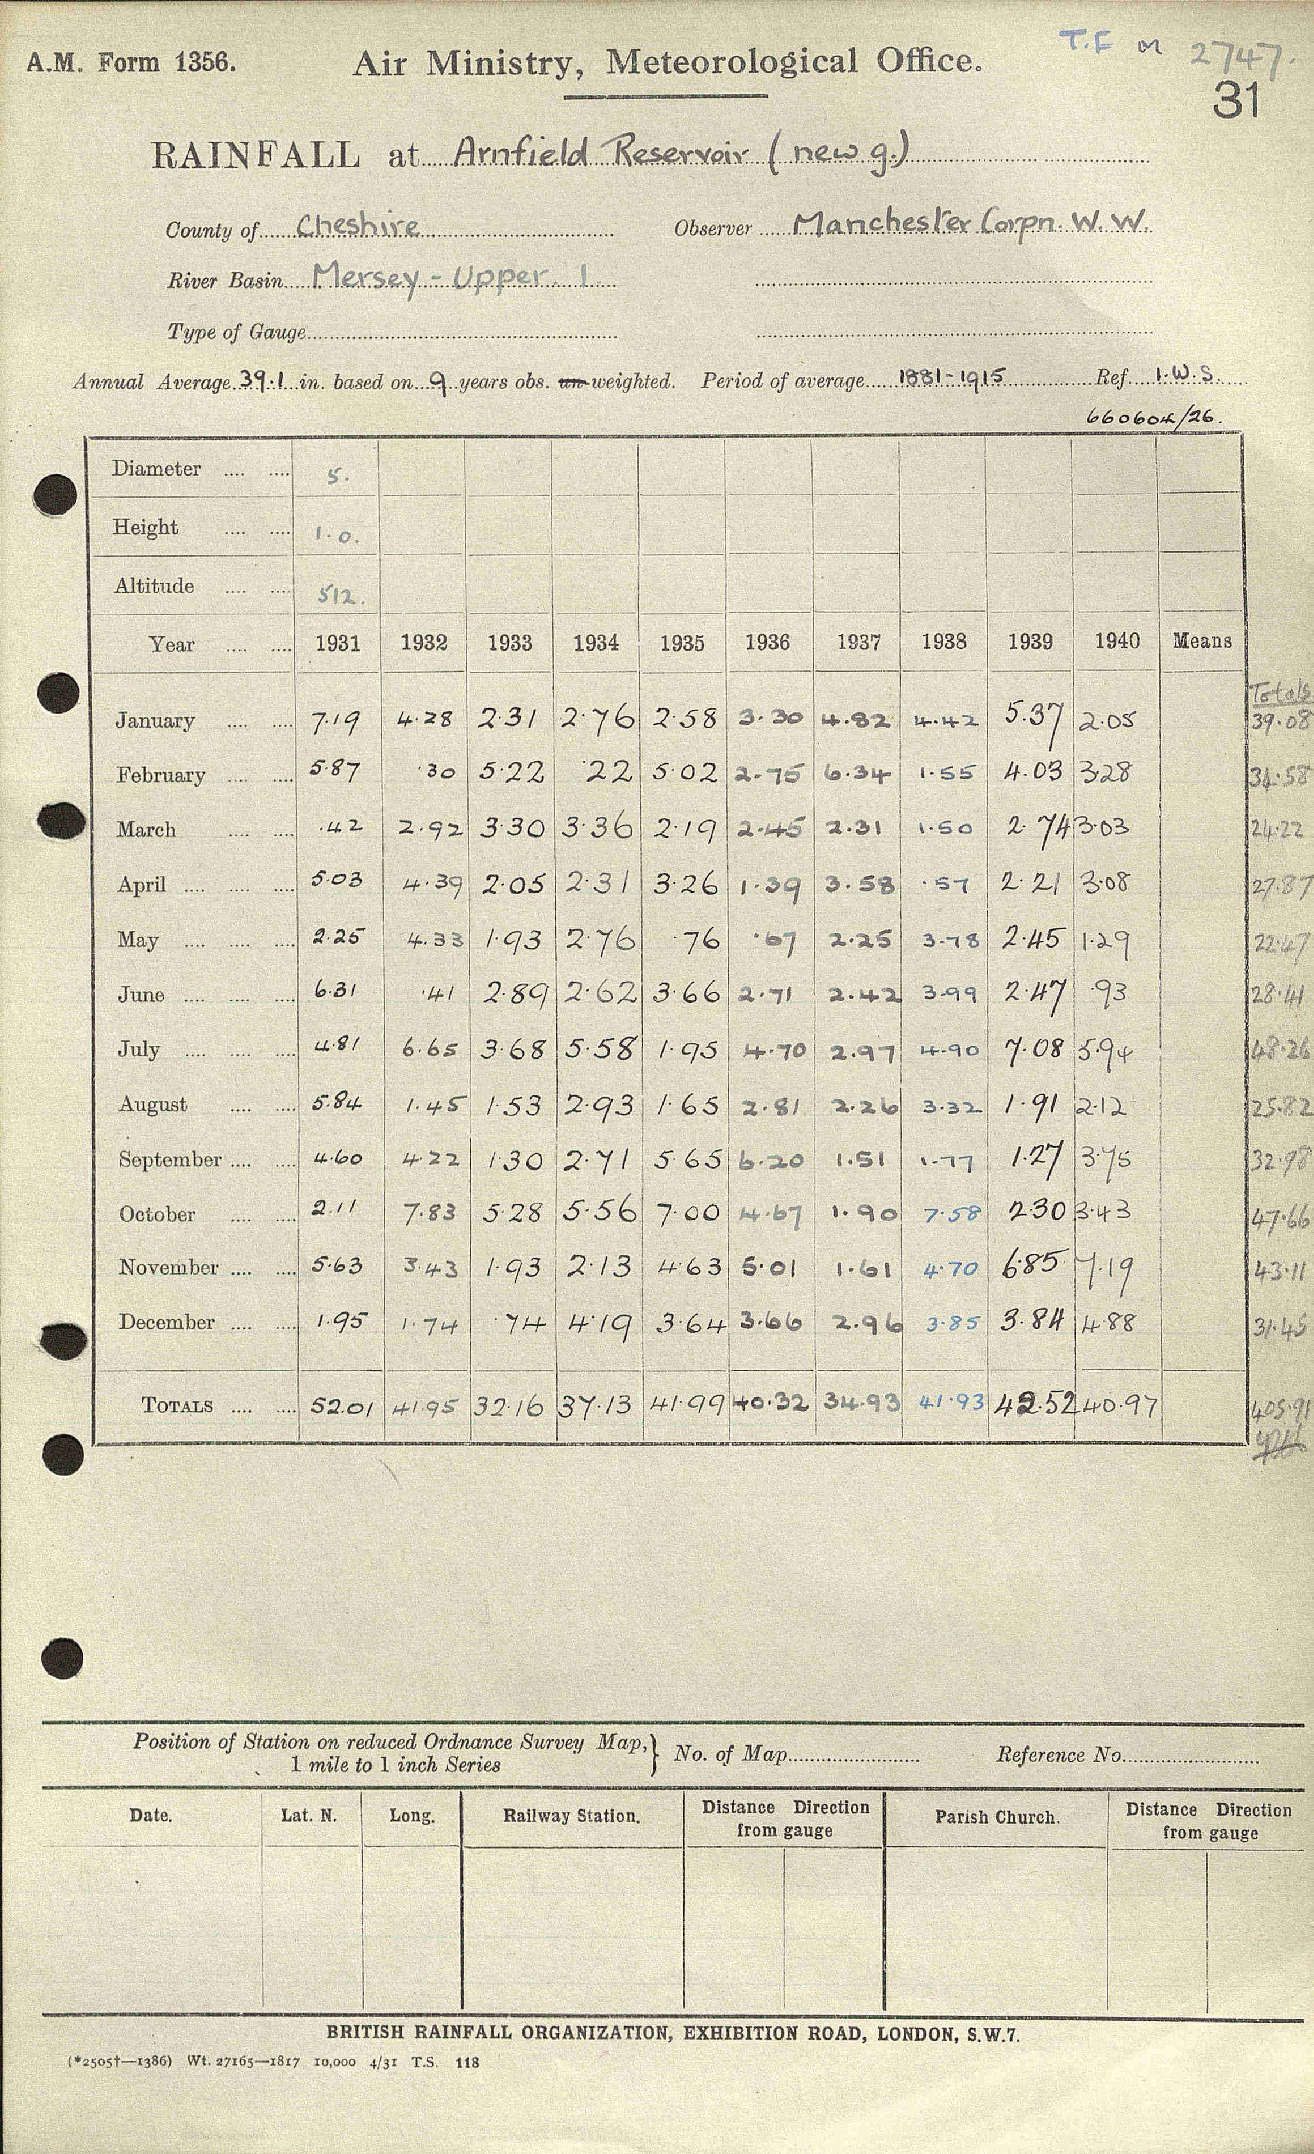 A.M. Form 1356. Air Ministry, Meteorological Office. T.E M 2747.
31
RAINFALL at Arnfield Reservoir (new g.)
County of Cheshire Observer Manchester Corpn. W.W.
River Basin Mersey - Upper. 1
Type of Gauge
Annual Average 39.1 in. based on 9 years obs. un-weighted. Period of average 1881-1915 Ref. I.W.S.
660604/26.
Diameter 5.
Height 1.0.
Altitude 512.
Year 1931 1932 1933 1934 1935 1936 1937 1938 1939 1940 Means
Totals
January 7.19 4.28 2.31 2.76 2.58 3.30 4.82 4.42 5.37 2.05 39.08
February 5.87 .30 5.22 .22 5.02 2.75 6.34 1.55 4.03 3.28 34.58
March .42 2.92 3.30 3.36 2.19 2.45 2.31 1.50 2.74 3.03 24.22
April 5.03 4.39 2.05 2.31 3.26 1.39 3.58 .57 2.21 3.08 27.87
May 2.25 4.33 1.93 2.76 .76 .67 2.25 3.78 2.45 1.29 22.47
June 6.31 .41 2.89 2.62 3.66 2.71 2.42 3.99 2.47 .93 28.41
July 4.81 6.65 3.68 5.58 1.95 4.70 2.97 4.90 7.08 5.94 48.26
August 5.84 1.45 1.53 2.93 1.65 2.81 2.26 3.32 1.91 2.12 25.82
September 4.60 4.22 1.30 2.71 5.65 6.20 1.51 1.77 1.27 3.75 32.98
October 2.11 7.83 5.28 5.56 7.00 4.67 1.90 7.58 2.30 3.43 47.66
November 5.63 3.43 1.93 2.13 4.63 5.01 1.61 4.70 6.85 7.19 43.11
December 1.95 1.74 .74 4.19 3.64 3.66 2.96 3.85 3.84 4.88 31.45
TOTALS 52.01 41.95 32.16 37.13 41.99 40.32 34.93 41.93 42.52 40.97 405.91
Position of Station on reduced Ordnance Survey Map, } No. of Map Reference No.
1 mile to 1 inch Series
Date. Lat. N. Long. Railway Station. Distance Direction from gauge Parish Church. Distance Direction from gauge
BRITISH RAINFALL ORGANIZATION, EXHIBITION ROAD, LONDON, S.W.7.
(*2505†—1386) Wt. 27165—1817 10,000 4/31 T.S. 118